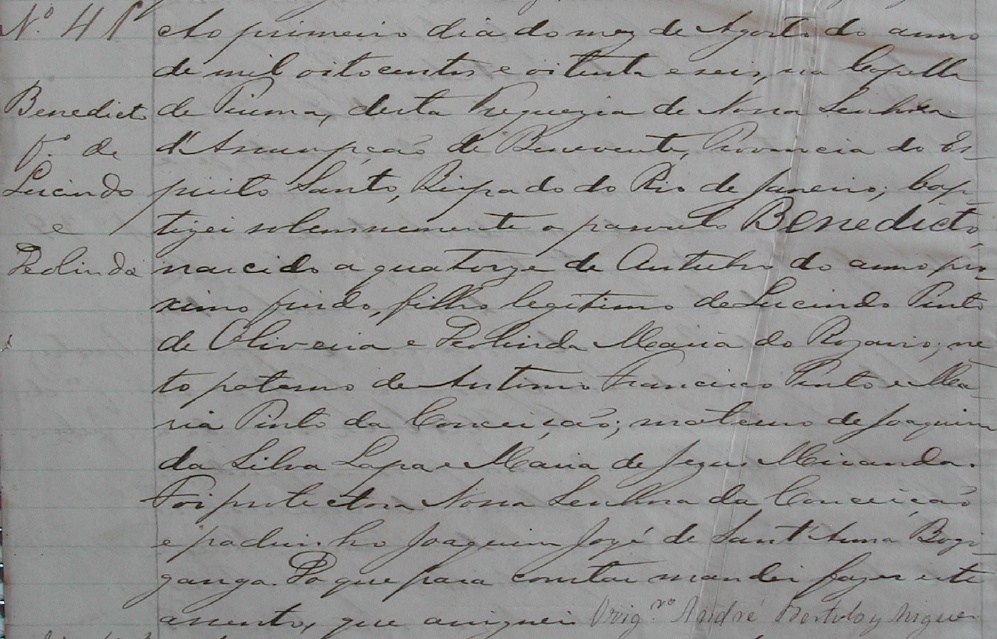 Nº 41 Ao primeiro dia do mez de Agosto do anno
de mil oitocentos e oitenta e seis, na Capella
Benedicto de Piuma, desta Freguezia de Nossa Senhora
fº de d'Assumpção de Benevente, Provincia do Es-
Lucindo pirito Santo, Bispado do Rio de Janeiro; bap
e tizei solemnemente a parvulo Benedicto
Deolinda nascido a quatorze de Outubro do anno pro-
ximo findo, filho legitimo de Lucindo Pinto
de Oliveira e Deolinda Maria do Rozario; ne
to paterno de Antonio Francisco Pinto e Ma-
ria Pinto da Conceição; materno de Joaquim
da Silva Lapa e Maria de Jezus Miranda.
Foi protectora Nossa Senhora da Conceição
e padrinho Joaquim Jozé de Sant'Anna
ganga. Do que para constar mandei fazer este
assento, que assignei Vrigº André